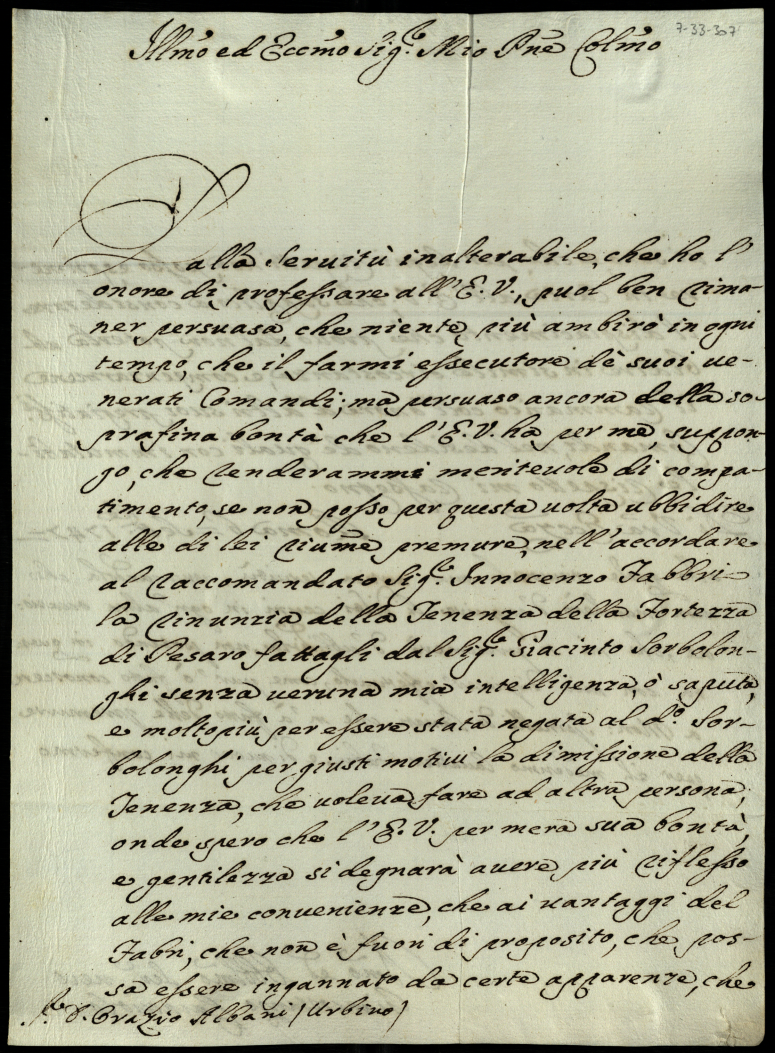 7-33-307
Illmo ed Eccmo Sigr. Mio Pne Colmo
Dalla Seruitù inalterabile, che ho l'
onore di professare all'E. V., puol ben rima-
ner persuasa, che niente più ambirò in ogni
tempo, che il farmi essecutore dè suoi ue-
nerati Comandi; ma persuaso ancora della so-
prafina bontà che l'E. V. ha per me, suppon-
go, che renderammi meriteuole di compa-
timento, se non posso per questa uolta ubbidire
alle di lei riume premure, nell'accordare
al raccomandato Sigr. Innocenzo Fabbri
la rinunzia della Tenenza della Fortezza
di Pesaro fattagli dal Sigr. Giacinto Sorbolon-
ghi senza ueruna mia intelligenza, ò saputa,
e molto più per essere stata negata al do. Sor-
bolonghi per giusti motiui la dimissione della
Tenenza, che uoleua fare ad altra persona;
onde spero che l'E. V. per mera sua bontà,
e gentilezza si degnarà auere più riflesso
alle mie conuenienze, che ai uantaggi del
Fabri, che non è fuori di proposito, che pos-
sa essere ingannato da certe apparenze, che
Sr. D. Orazio Albani (Urbino)